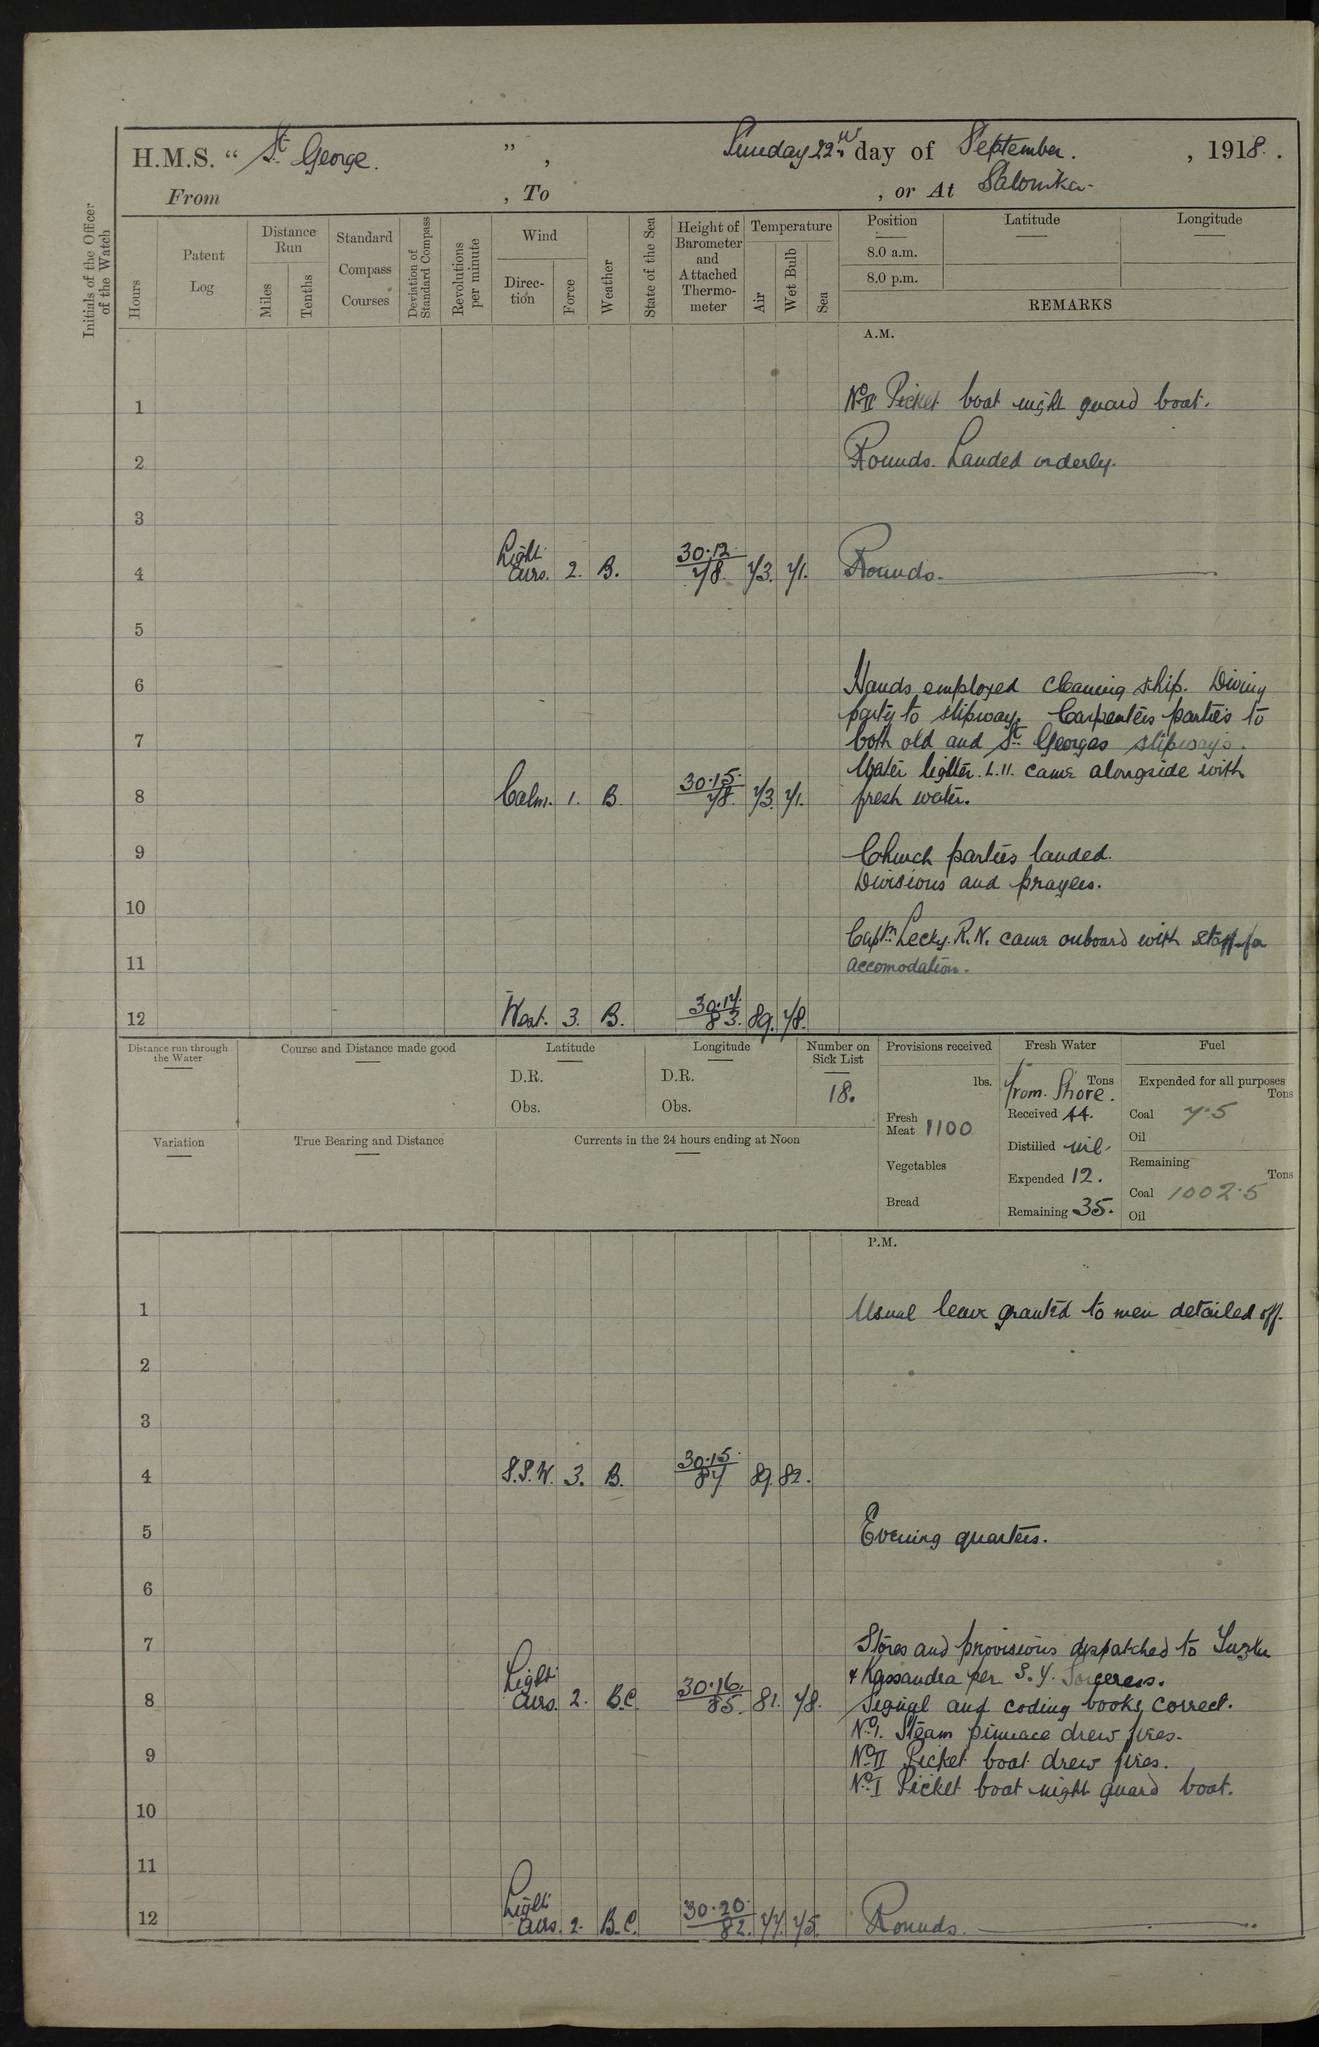 H.M.S. “ St George. ” , Sunday 22nd day of September. , 1918.
From , To , or At Salonika.
Initials of the Officer of the Watch
Hours
Patent Log
Distance Run
Miles
Tenths
Standard Compass Courses
Deviation of Standard Compass
Revolutions per minute
Wind
Direc-tion
Force
Weather
State of the Sea
Height of Barometer and Attached Thermo-meter
Temperature
Air
Wet Bulb
Sea
Position Latitude Longitude
8.0 a.m.
8.0 p.m.
REMARKS
A.M.
1 No II Picket boat night guard boat.
2 Rounds. Landed orderly.
3
4 Light airs. 2. B. 30.12 78. 73. 71. Rounds.
5
6 Hands employed cleaning ship. Diving
party to slipway. Carpenters parties to
7 both old and St Georges slipways.
Water lighter L.11. came alongside with
8 Calm. 1. B. 30.15. 78. 73. 71. fresh water.
9 Church parties landed.
Divisions and prayers.
10
Captn Lecky. R.N. came onboard with staff for
11 accomodation.
12 West. 3. B. 30.17. 83. 89. 78.
Distance run through the Water
Course and Distance made good
Latitude
D.R.
Obs.
Longitude
D.R.
Obs.
Number on Sick List
18.
Provisions received
lbs.
Fresh Meat 1100
Vegetables
Bread
Fresh Water
Tons
from Shore.
Received 44.
Distilled nil.
Expended 12.
Remaining 35.
Fuel
Expended for all purposes
Tons
Coal 7.5
Oil
Remaining
Tons
Coal 1002.5
Oil
Variation
True Bearing and Distance
Currents in the 24 hours ending at Noon
P.M.
1 Usual leave granted to men detailed off.
2
3
4 S.S.W. 3. B. 30.15. 87. 89. 82.
5 Evening quarters.
6
7 Stores and provisions dispatched to
& Kassandra per S.Y. Sorceress.
8 Light airs. 2. B.C. 30.16. 85. 81. 78. Signal and coding books correct.
No 1. Steam pinnace drew fires.
9 No II Picket boat drew fires.
No I Picket boat night guard boat.
10
11
12 Light airs. 2. B.C. 30.20. 82. 77. 75. Rounds.